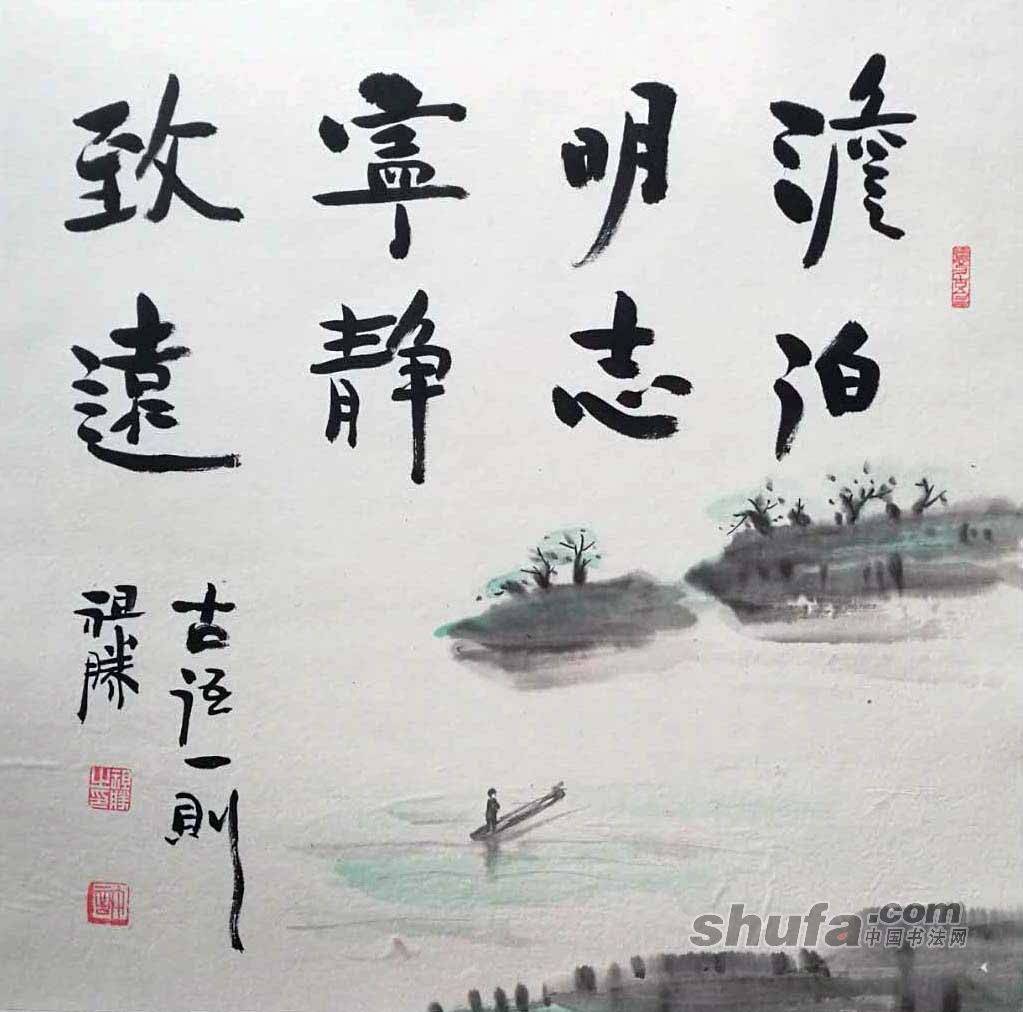 澹泊
明志
寧静
致遠
古语一则
祖勝
shufa.com
中国书法网